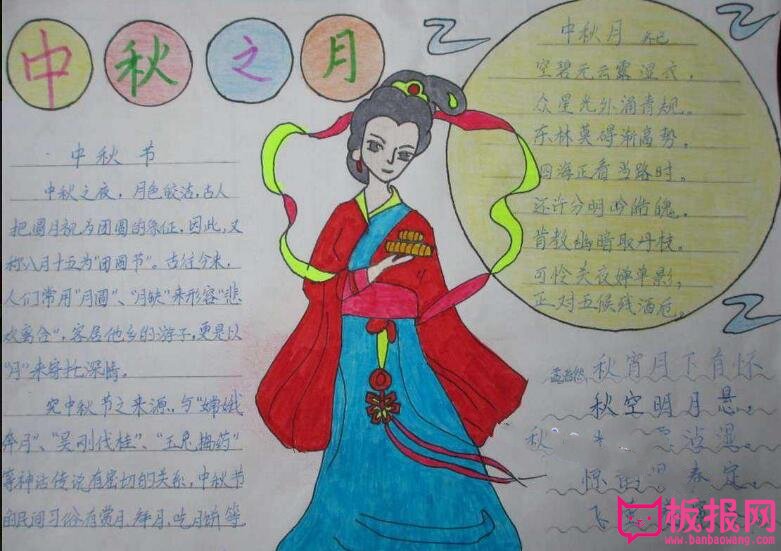 中秋之月
中秋节
中秋之夜，月色皎洁，古人
把圆月视为团圆的象征，因此，又
称八月十五为"团圆节"。古往今来，
人们常用"月圆"、"月缺"来形容"悲
欢离合"，客居他乡的游子，更是以
"月"来寄托深情。
究中秋节之来源，与"嫦娥
奔月"、"吴刚伐桂"、"玉兔捣药"
等神话传说有密切的关系，中秋节
的民间习俗有赏月、拜月、吃月饼等
中秋月 齐己
空碧无云露湿衣，
众星光外涌青规。
东林莫碍渐高势，
四海正看当路时。
还许分明吟皓魄，
肯教幽暗取丹枝。
可怜关夜婵单影，
正对五候残酒卮。
孟浩然 秋宵月下有怀
秋空明月悬，
秋 沾湿。
惊 定，
飞
板报网
www.banbaowang.com